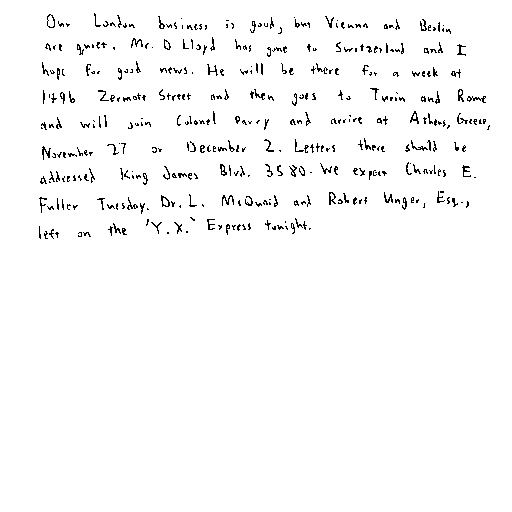 Our London business is good, but Vienna and Berlin
are quiet. Mr. D Lloyd has gone to Switzerland and I
hope for good news. He will be there for a week at
1496 Zermott Street and then goes to Turin and Rome
and will join Colonel Parry and arrive at Athens, Greece,
November 27 or December 2. Letters there should be
addressed King James Blvd. 3580. We expect Charles E.
Fuller Tuesday. Dr. L. McQuaid and Robert Unger, Esq.,
left on the 'Y.X.' Express tonight.